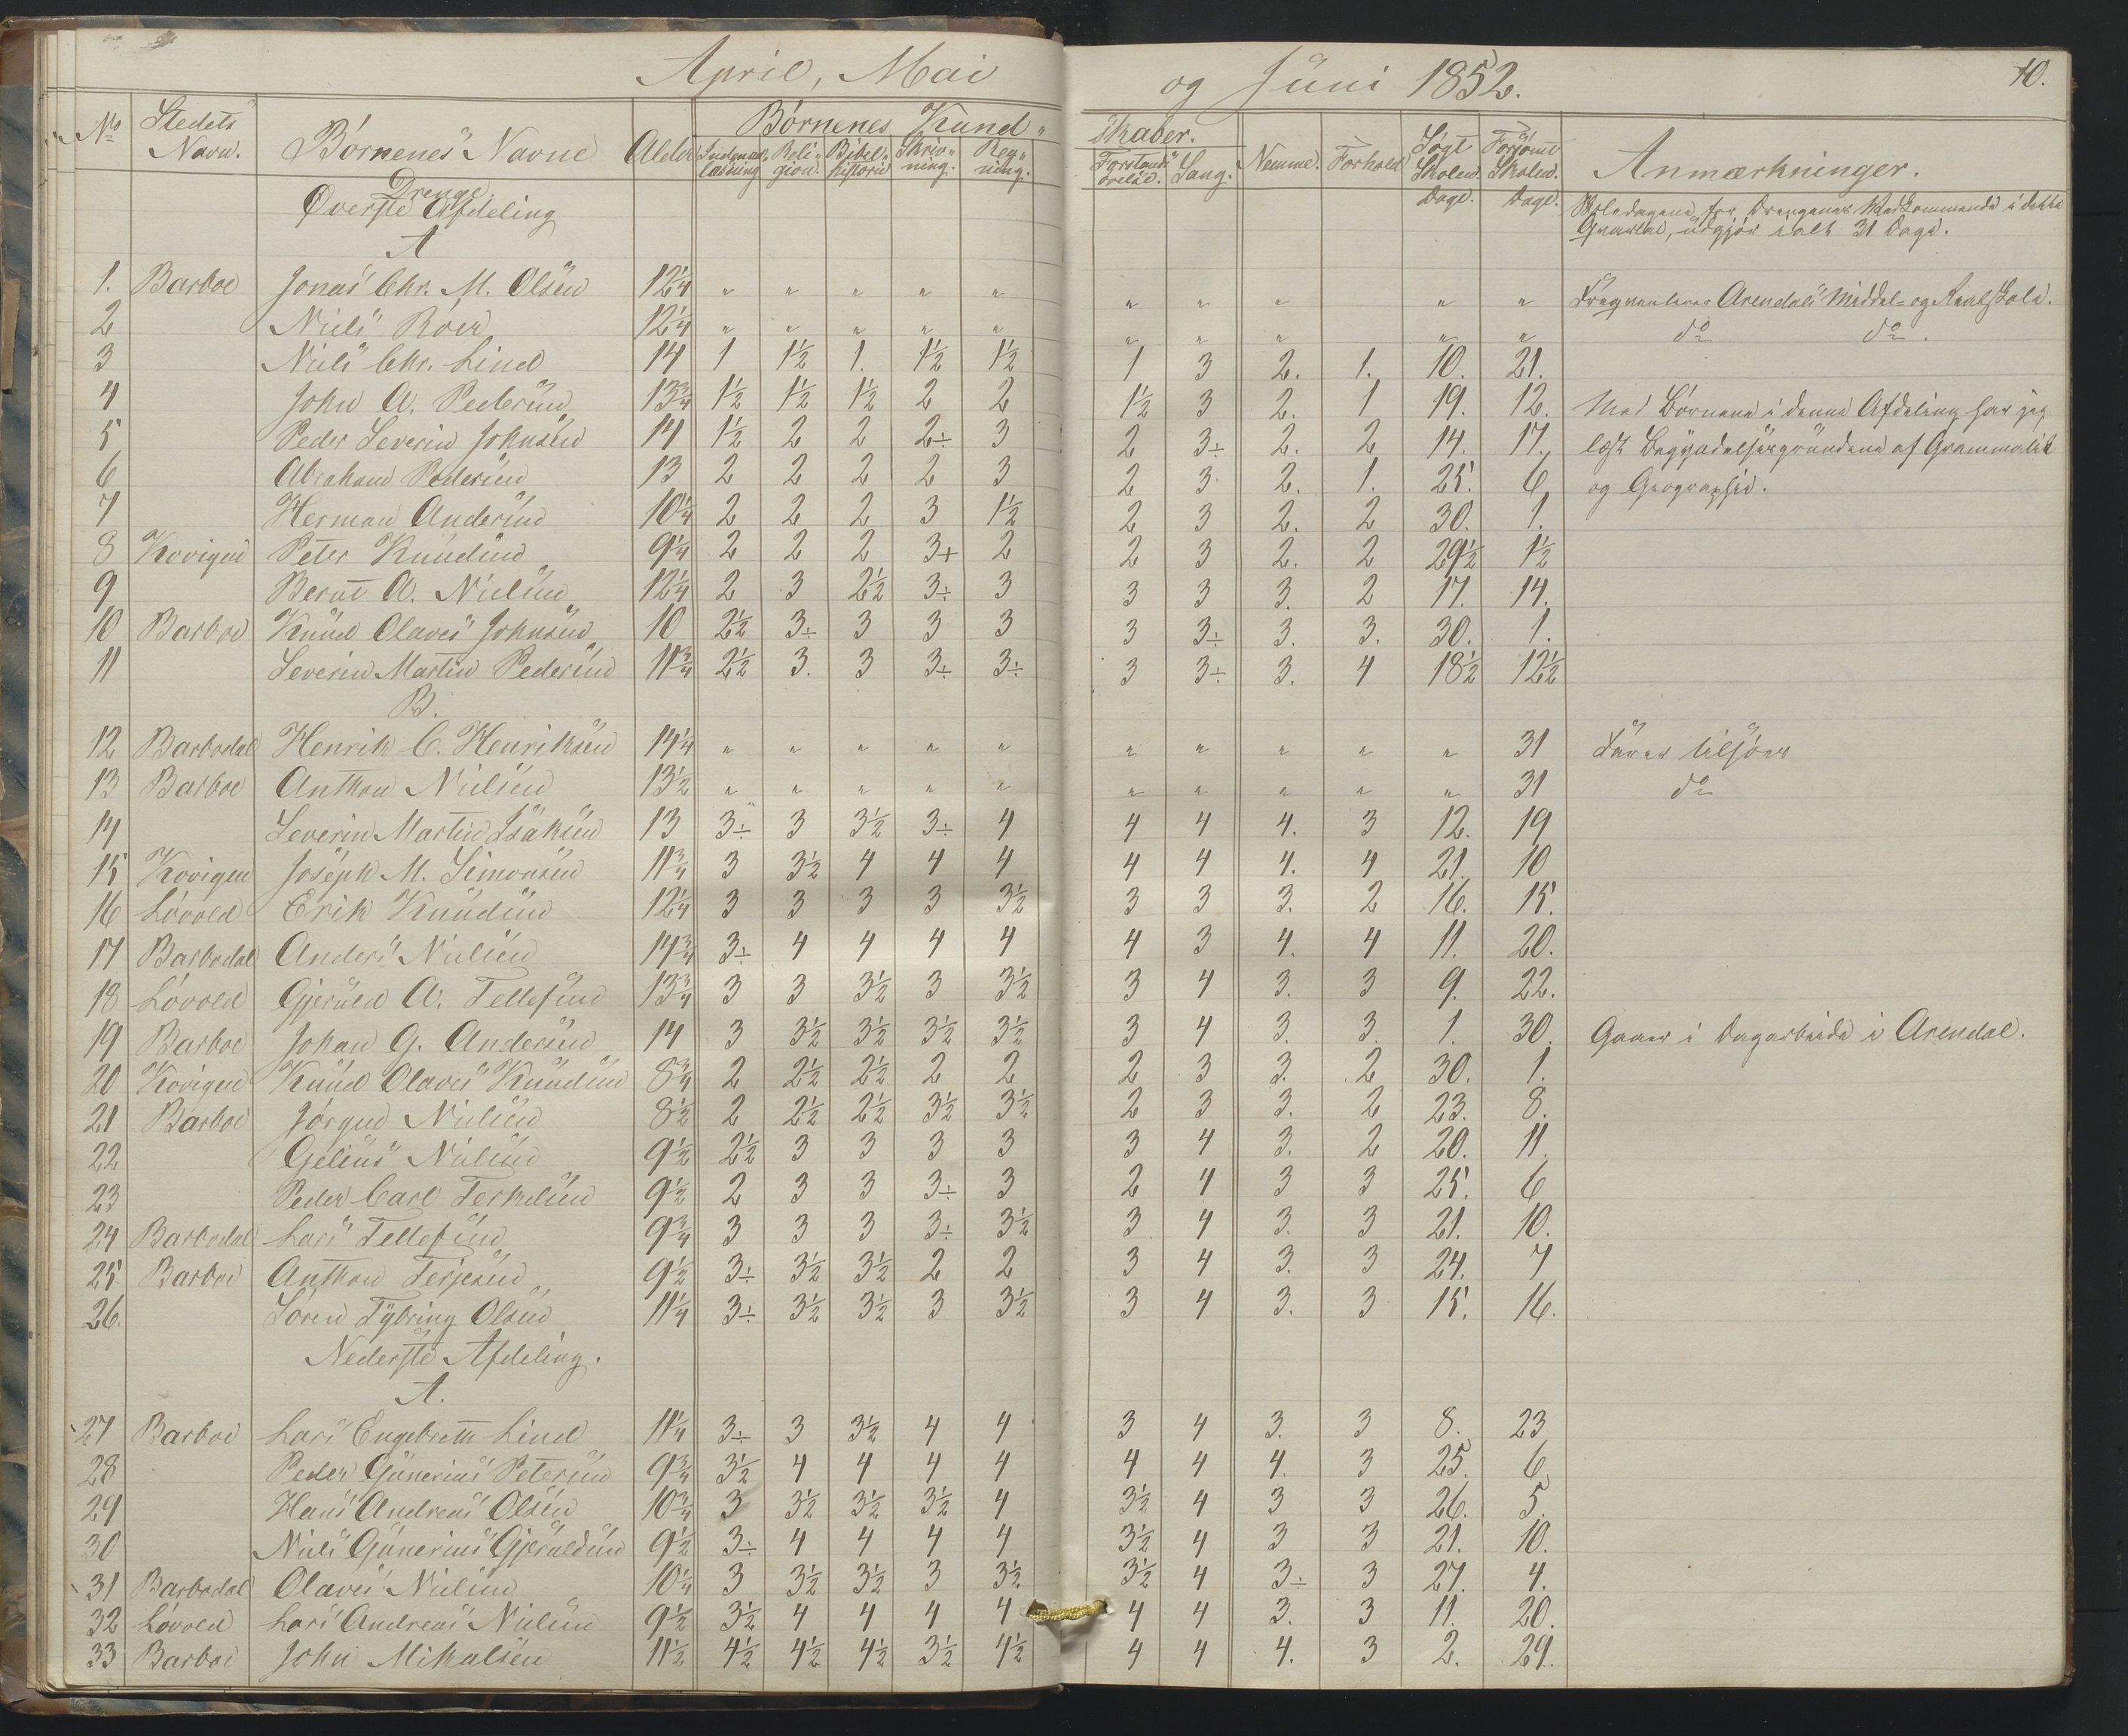 April, Mai og Juni 1852. 10.
No Stedets Navn. Børnenes Navne Alder Børnenes Kund-skaber. Nemme. Forhold Søgt Skolen. Dage. Forsømt Skolen. Dage. Anmærkninger.
Indenadlæsning Religion. Bibelhistorie Skrivning. Regning. Sang.
Drenge.
Øverste Afdeling
A
Skoledagene for Drengenes Vedkommende i dette
Qvartal, udgjør i alt 31 Dage.
1. Barboe Jonas Chr. M. Olsen 12 1/4 " " " " " " " " " " Freqventerer Arendals Middel- og Realskole.
2 Niels Röer 12 1/4 " " " " " " " " " " do do.
3 Niels Chr. Lind 14 1 1 1/2 1. 1 1/2 1 1/2 1 3 2. 1. 10. 21.
4 John A. Pedersen 13 3/4 1 1/2 1 1/2 1 1/2 2 2 1 1/2 3 2. 1 19. 12. Med Børnene i denne Afdeling har jeg
5 Peder Severin Johnsen 14 1 1/2 2 2 2÷ 3 2 3÷ 2. 2 14. 17. læst Begyndelsesgrundene af Grammatik
6 Abraham Pedersen 13 2 2 2 2 3 2 3 2. 1. 25. 6 og Geographie.
7 Herman Andersen 10 1/4 2 2 2 3 1 1/2 2 3 2. 2 30. 1.
8 Kovigen Peter Knudsen 9 1/4 2 2 2 3+ 2 2 3 2. 2 29 1/2 1 1/2
9 Bernt A. Nielsen 12 1/4 2 3 2 1/2 3÷ 3 3 3 3. 2 17. 14.
10 Barboe Knud Olaves Johnsen 10 2 1/2 3÷ 3 3 3 3 3÷ 3. 3. 30. 1.
11 Severin Martin Pedersen 11 3/4 2 1/2 3. 3 3÷ 3÷ 3 3÷ 3. 4 18 1/2 12 1/2
B.
12 Barbodal Henrik C. Henriksen 14 1/4 " " " " " " " " " " 31 Farer tilsøes
13 Barboe Anthon Nielsen 13 1/2 " " " " " " " " " " 31 do
14 Severin Martin Isaksen 13 3÷ 3 3 1/2 3÷ 4 4 4 4. 3 12. 19
15 Kovigen Joseph M. Simonsen 11 3/4 3 3 1/2 4 4 4 4 4 4. 4 21. 10
16 Løvold Erik Knudsen 12 1/4 3 3 3 3 3 1/2 3 3 3. 2 16. 15.
17 Barbodal Anders Nielsen 14 3/4 3÷ 4 4 4 4 4 3 4. 4 11. 20.
18 Løvold Gjeruld A. Tellefsen 13 3/4 3 3 3 1/2 3 3 1/2 3 4 3. 3 9. 22.
19 Barboe Johan G. Andersen 14 3 3 1/2 3 1/2 3 1/2 3 1/2 3 4 3. 3. 1. 30. Gaaer i Dagarbeide i Arendal.
20 Kovigen Knud Olaves Knudsen 8 3/4 2 2 1/2 2 1/2 2 2 2 3 3. 2 30. 1.
21 Barboe Jörgen Nielsen 8 1/2 2 2 1/2 2 1/2 3 1/2 3 1/2 2 3 3. 2 23. 8.
22 Gelius Nielsen 9 1/2 2 1/2 3 3 3 3 3 4 3. 2 20. 11.
23 Peder Carl Terkelsen 9 1/2 2 3 3 3÷ 3 2 4 3 3 25. 6
24 Barbodal Lars Tellefsen 9 3/4 3 3 3 3÷ 3 1/2 3 4 3. 3 21. 10.
25 Barboe Anthon Terjesen 9 1/2 3÷ 3 1/2 3 1/2 2 2 3 4 3. 3 24. 7
26. Sören Tybring Olsen 11 1/4 3÷ 3 1/2 3 1/2 3 3 1/2 3 4 3. 3 15. 16.
Nederste Afdeling.
A.
27 Barboe Lars Engebreth Lind 11 1/4 3÷ 3 3 1/2 4 4 3 4 3. 3 8. 23
28 Peder Gunerius Petersen 9 3/4 3 1/2 4 4 4 4 4 4 4. 3 25. 6
29 Hans Andreas Olsen 10 3/4 3 3 1/2 3 1/2 3 1/2 4 3 1/2 4 3 3 26. 5.
30 Niels Gunerius Gjeruldsen 9 1/2 3÷ 4 4 4 4 3 1/2 4 3 3 21. 10.
31 Barbodal Olaves Nielsen 10 1/4 3 3 1/2 3 1/2 3 3 1/2 3 1/2 4 3÷ 3 27. 4.
32 Løvold Lars Andreas Nielsen 9 1/2 3 1/2 4 4 4 4 4 4 3. 3 11. 20.
33 Barboe John Mikalsen 11 1/2 4 1/2 4 1/2 4 1/2 3 1/2 4 1/2 4 4 4. 3 2. 29.